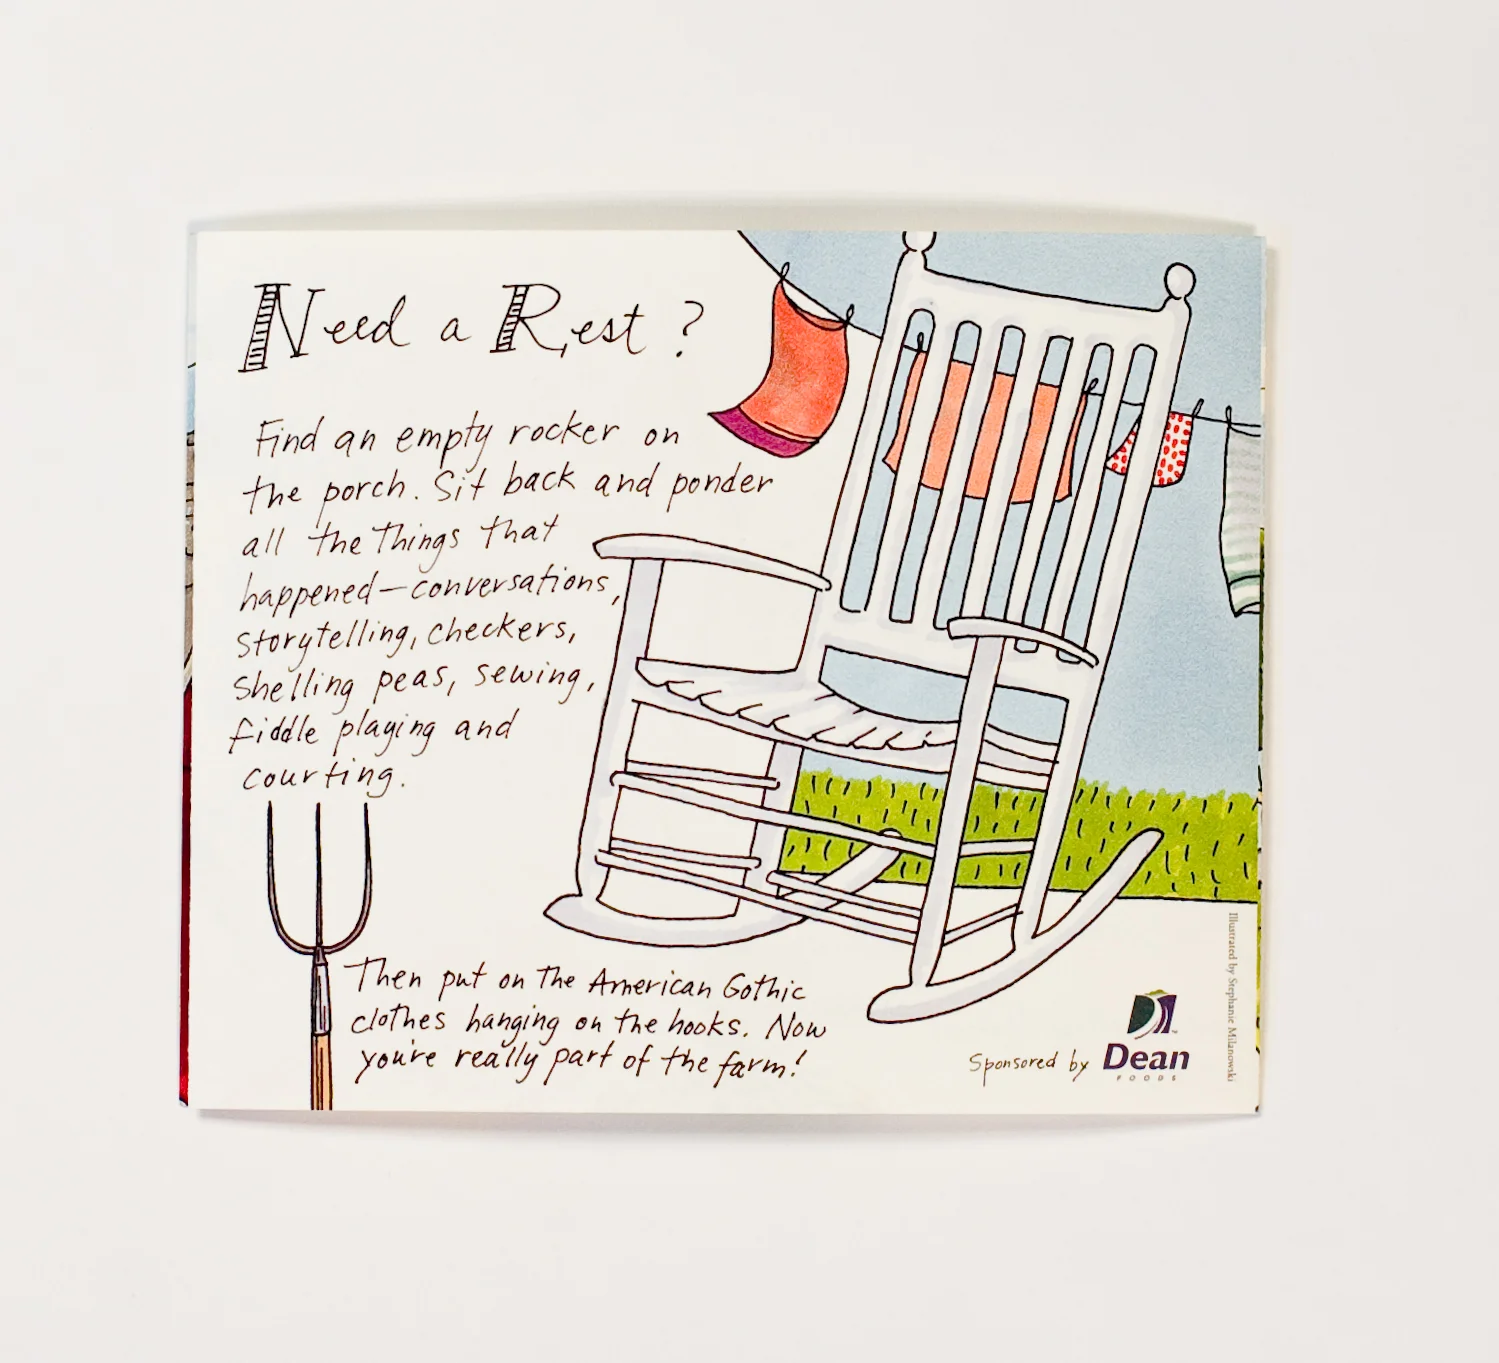 Need a Rest?
Find an empty rocker on
the porch. Sit back and ponder
all the things that
happened—conversations,
storytelling, checkers,
shelling peas, sewing,
fiddle playing and
courting.
Then put on the American Gothic
clothes hanging on the hooks. Now
you're really part of the farm!
Sponsored by
Dean
FOODS
Illustrated by Stephanie Milanowski